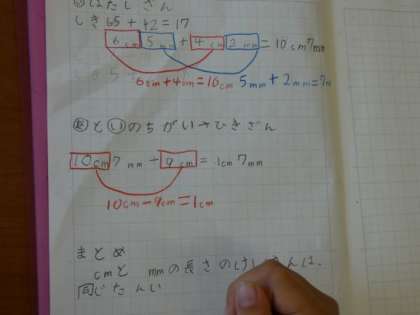 ㋐はたしざん
しき65+42=17
6cm 5mm + 4cm 2mm = 10cm7mm
6cm+4cm=10cm 5mm+2mm=7m
㋐と㋑のちがい→ひきざん
10cm7mm - 9cm = 1cm7mm
10cm-9cm=1cm
まとめ
cmと mmの長さのけいさんは、
同じたんい